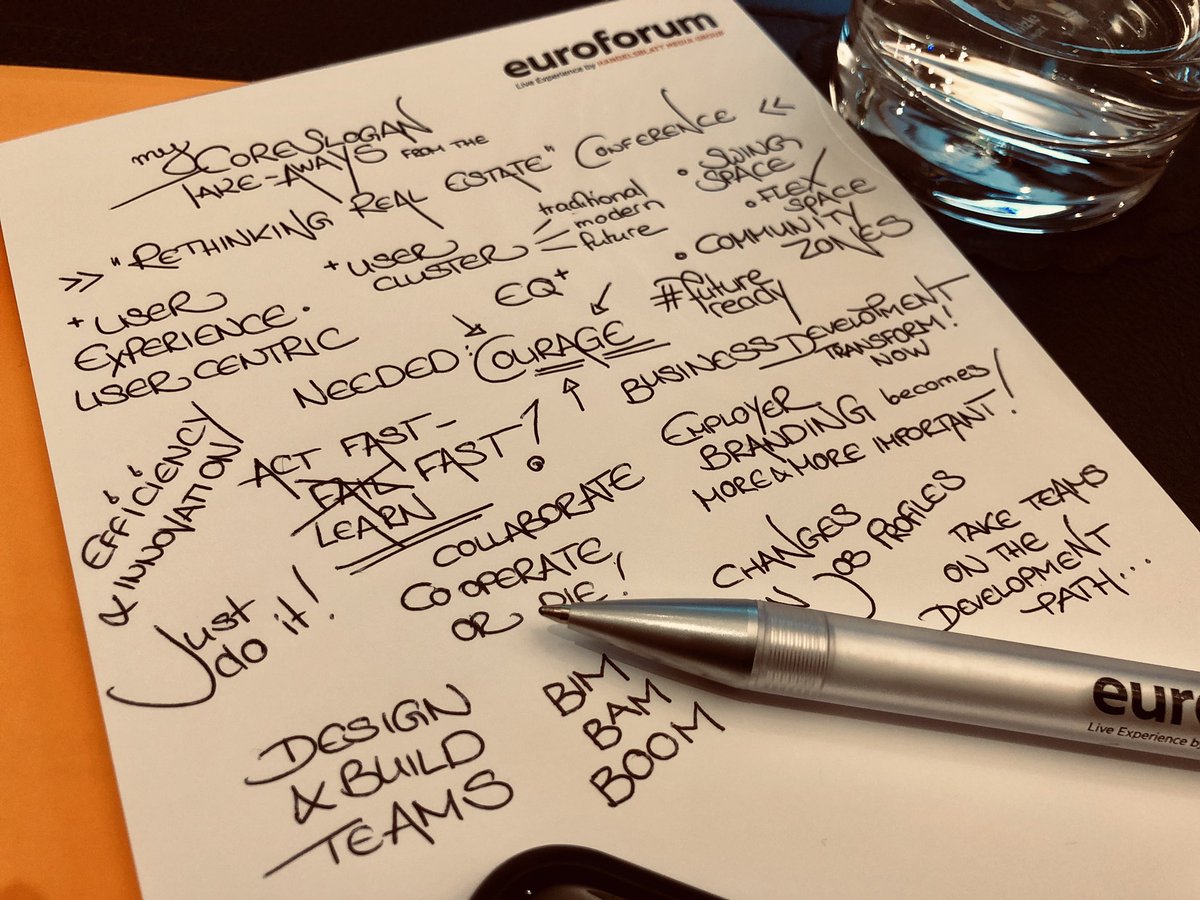 euroforum
Live Experience by HANDELSBLATT MEDIA GROUP
my CORE SLOGAN
TAKE-AWAYS FROM THE
>> "RETHINKING REAL ESTATE" CONFERENCE <<
+ USER
EXPERIENCE.
USER CENTRIC
+ USER
CLUSTER
traditional
modern
future
• SWING
SPACE
• FLEX
SPACE
• COMMUNITY
ZONES
EQ+
#future
ready
NEEDED: COURAGE
BUSINESS DEVELOPMENT
TRANSFORM!
NOW
EFFICIENCY
& INNOVATION
ACT FAST –
FAIL FAST!
LEARN
EMPLOYER
BRANDING becomes
MORE & MORE IMPORTANT!
Just
do it!
COLLABORATE
COOPERATE
OR DIE!
CHANGES
JOB PROFILES
TAKE TEAMS
ON THE
DEVELOPMENT
PATH...
DESIGN
& BUILD
TEAMS
BIM
BAM
BOOM
euro
Live Experience by